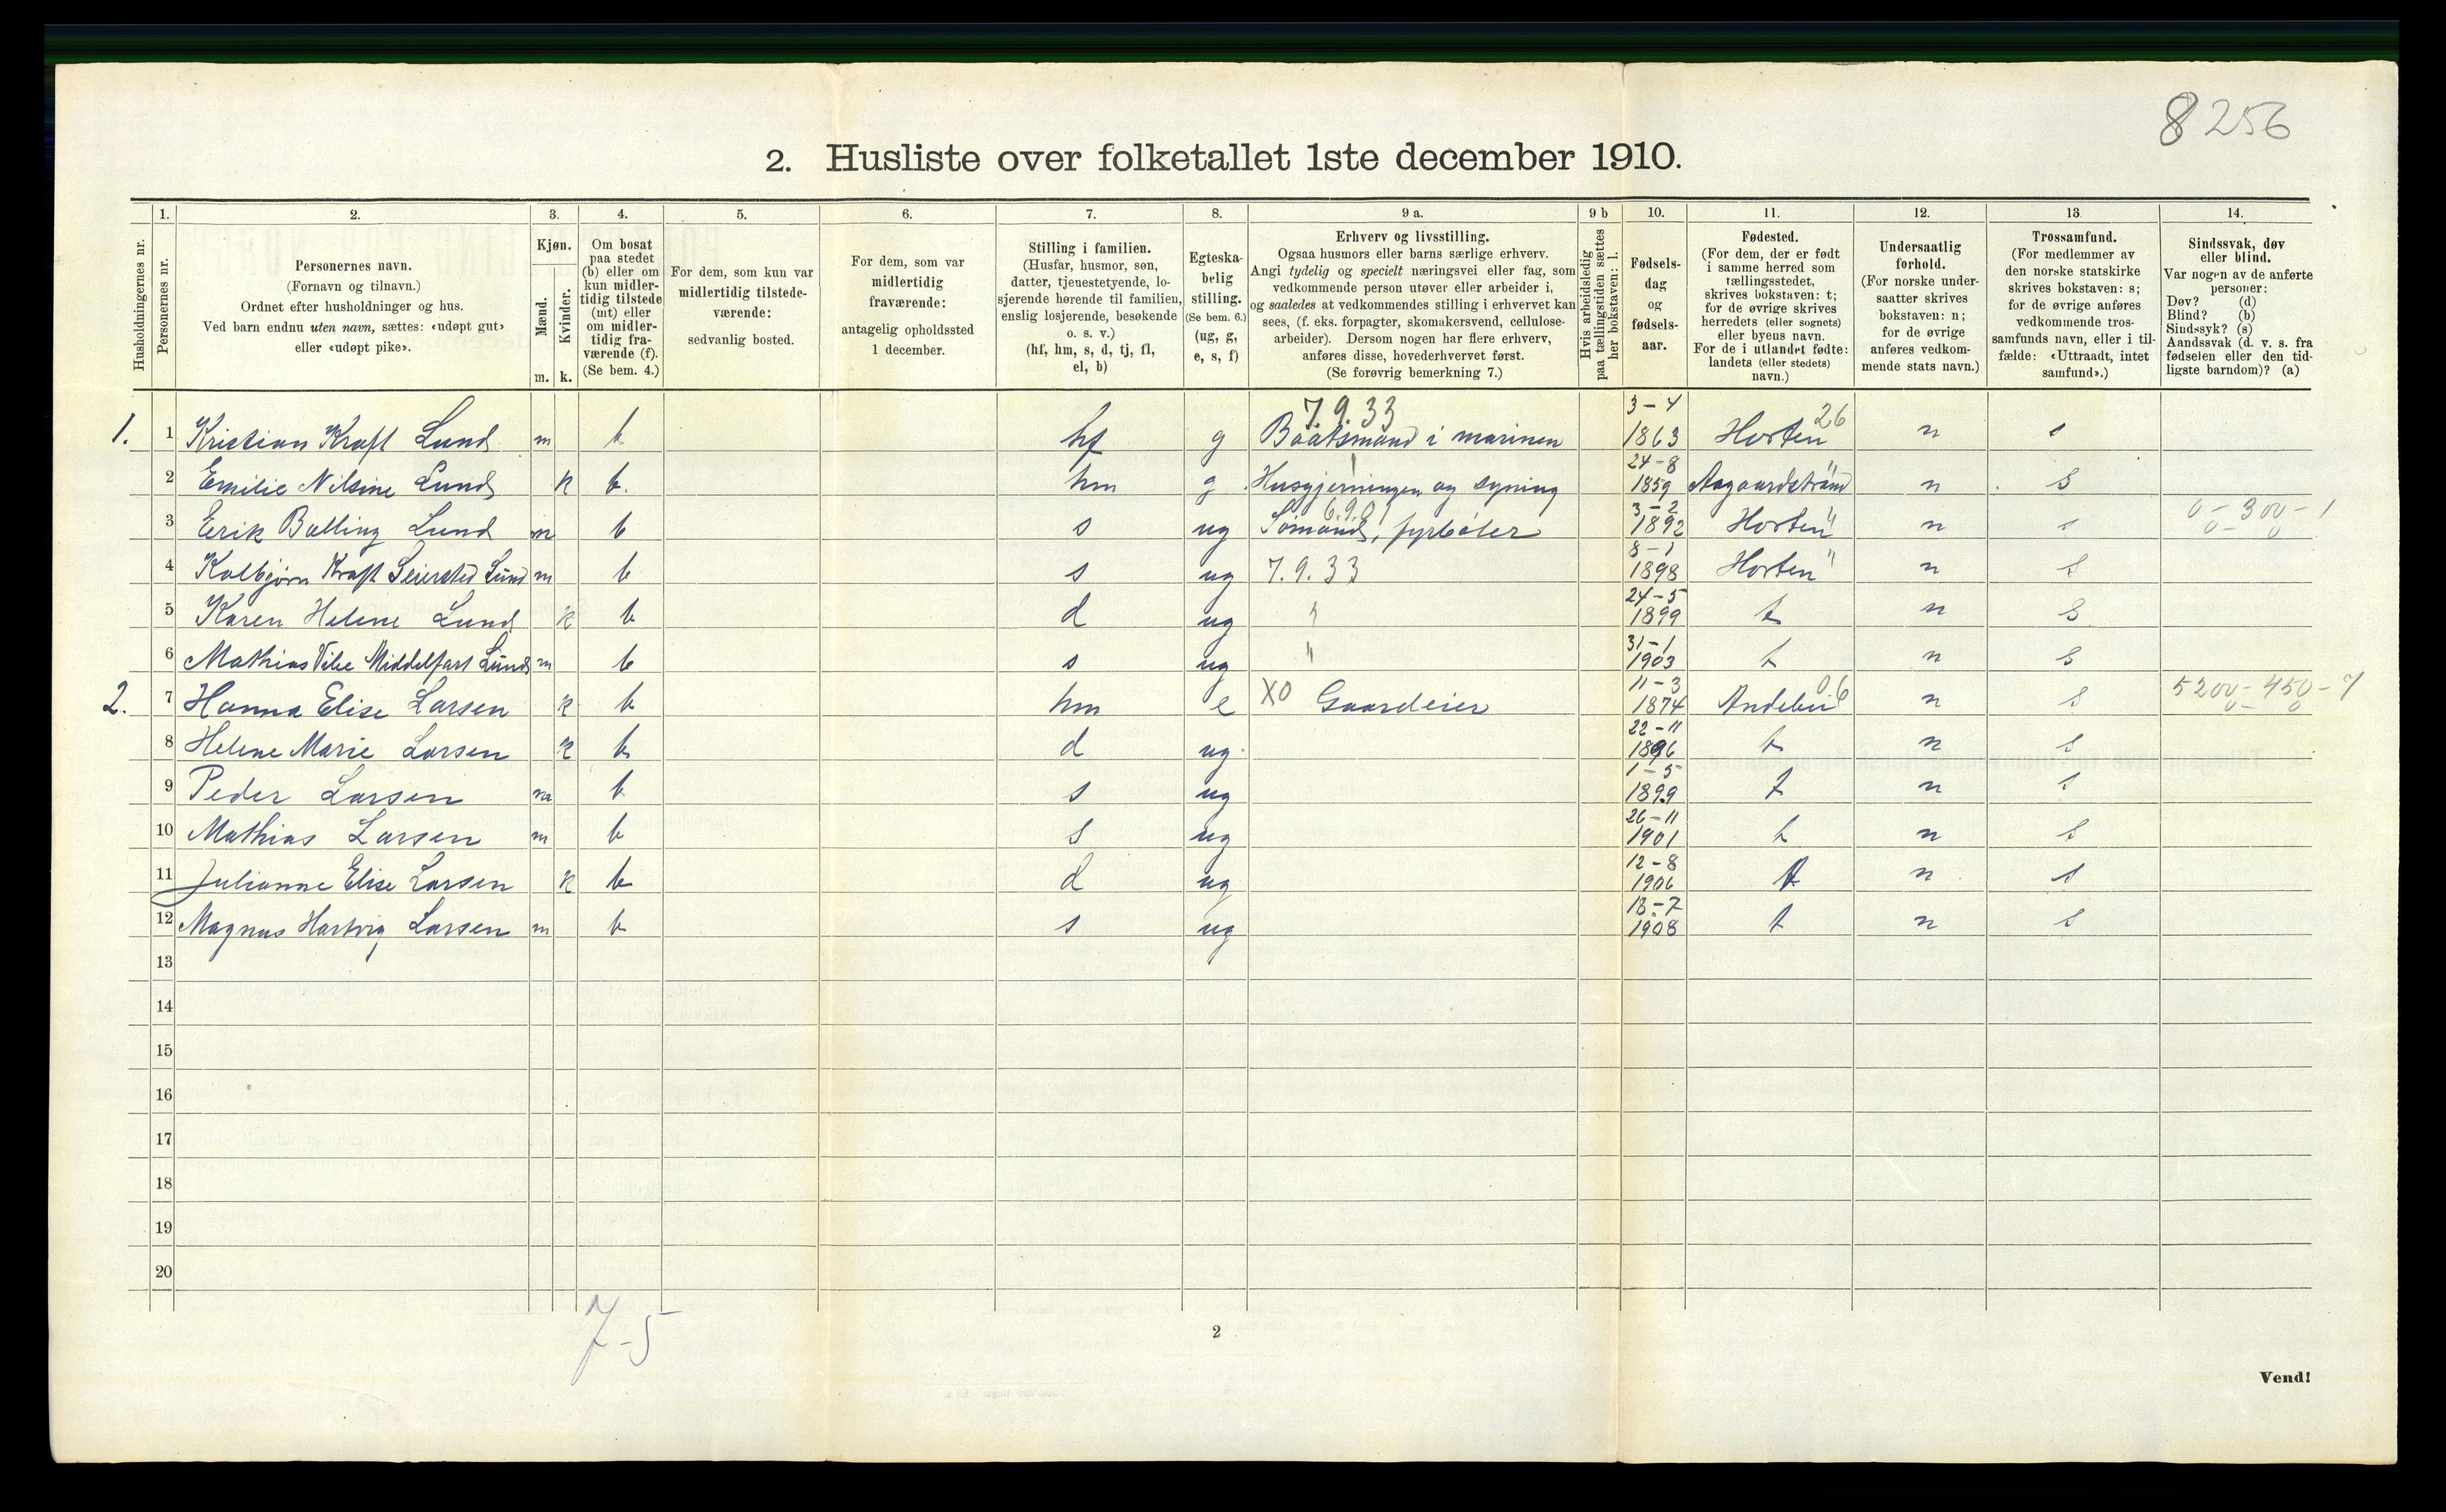 8256
2. Husliste over folketallet 1ste december 1910.
Husholdningernes nr.
1.
Personernes nr.
2.
Personernes navn.
(Fornavn og tilnavn.)
Ordnet efter husholdninger og hus.
Ved barn endnu uten navn, sættes: «udøpt gut»
eller «udøpt pike».
3.
Kjøn.
Mænd.
Kvinder.
m. k.
4.
Om bosat
paa stedet
(b) eller om
kun midler-
tidig tilstede
(mt) eller
om midler-
tidig fra-
værende (f).
(Se bem. 4.)
5.
For dem, som kun var
midlertidig tilstede-
værende:
sedvanlig bosted.
6.
For dem, som var
midlertidig
fraværende:
antagelig opholdssted
1 december.
7.
Stilling i familien.
(Husfar, husmor, søn,
datter, tjenestetyende, lo-
sjerende hørende til familien,
enslig losjerende, besøkende
o. s. v.)
(hf, hm, s, d, tj, fl,
el, b)
8.
Egteska-
belig
stilling.
(Se bem. 6.)
(ug, g,
e, s, f)
9 a.
Erhverv og livsstilling.
Ogsaa husmors eller barns særlige erhverv.
Angi tydelig og specielt næringsvei eller fag, som
vedkommende person utøver eller arbeider i,
og saaledes at vedkommendes stilling i erhvervet kan
sees, (f. eks. forpagter, skomakersvend, cellulose-
arbeider). Dersom nogen har flere erhverv,
anføres disse, hovederhvervet først.
(Se forøvrig bemerkning 7.)
9 b
Hvis arbeidsledig
paa tællingstiden sættes
her bokstaven: l.
10.
Fødsels-
dag
og
fødsels-
aar.
11.
Fødested.
(For dem, der er født
i samme herred som
tællingsstedet,
skrives bokstaven: t;
for de øvrige skrives
herredets (eller sognets)
eller byens navn.
For de i utlandet fødte:
landets (eller stedets)
navn.)
12.
Undersaatlig
forhold.
(For norske under-
saatter skrives
bokstaven: n;
for de øvrige
anføres vedkom-
mende stats navn.)
13
Trossamfund.
(For medlemmer av
den norske statskirke
skrives bokstaven: s;
for de øvrige anføres
vedkommende tros-
samfunds navn, eller i til-
fælde: «Uttraadt, intet
samfund».)
14.
Sindssvak, døv
eller blind.
Var nogen av de anførte
personer:
Døv? (d)
Blind? (b)
Sindssyk? (s)
Aandssvak (d. v. s. fra
fødselen eller den tid-
ligste barndom)? (a)
7.9.33 3-4 26
1. 1 Kristian Kraft Lund m b hf g Baatsmand i marinen 1863 Horten n s
24-8
2 Emilie Nilsine Lund k b. hm g Husgjerningen og syning 1859 Aagaardstrand n s
3-2 0-300-1
3 Erik Balling Lund m b s ug Sømand, fyrbøter 1892 Horten n s
8-1
4 Kolbjørn Kraft Seiersted Lund m b s ug 7.9.33 1898 Horten n s
24-5
5 Karen Helene Lund k b d ug " 1899 t n s
31-1
6 Mathias Vibe Middelfart Lund m b s ug " 1903 t n s
11-3 06 5200-450-7
2. 7 Hanna Elise Larsen k b hm e XO Gaardeier 1874 Andebu n s
22-11
8 Helene Marie Larsen k b d ug 1896 t n s
1-5
9 Peder Larsen m b s ug 1899 t n s
26-11
10 Mathias Larsen m b s ug 1901 t n s
12-8
11 Julianne Elise Larsen k b d ug 1906 t n s
13-7
12 Magnus Hartvig Larsen m b s ug 1908 t n s
13
14
15
16
17
18
19
20
7-5
2
Vend!